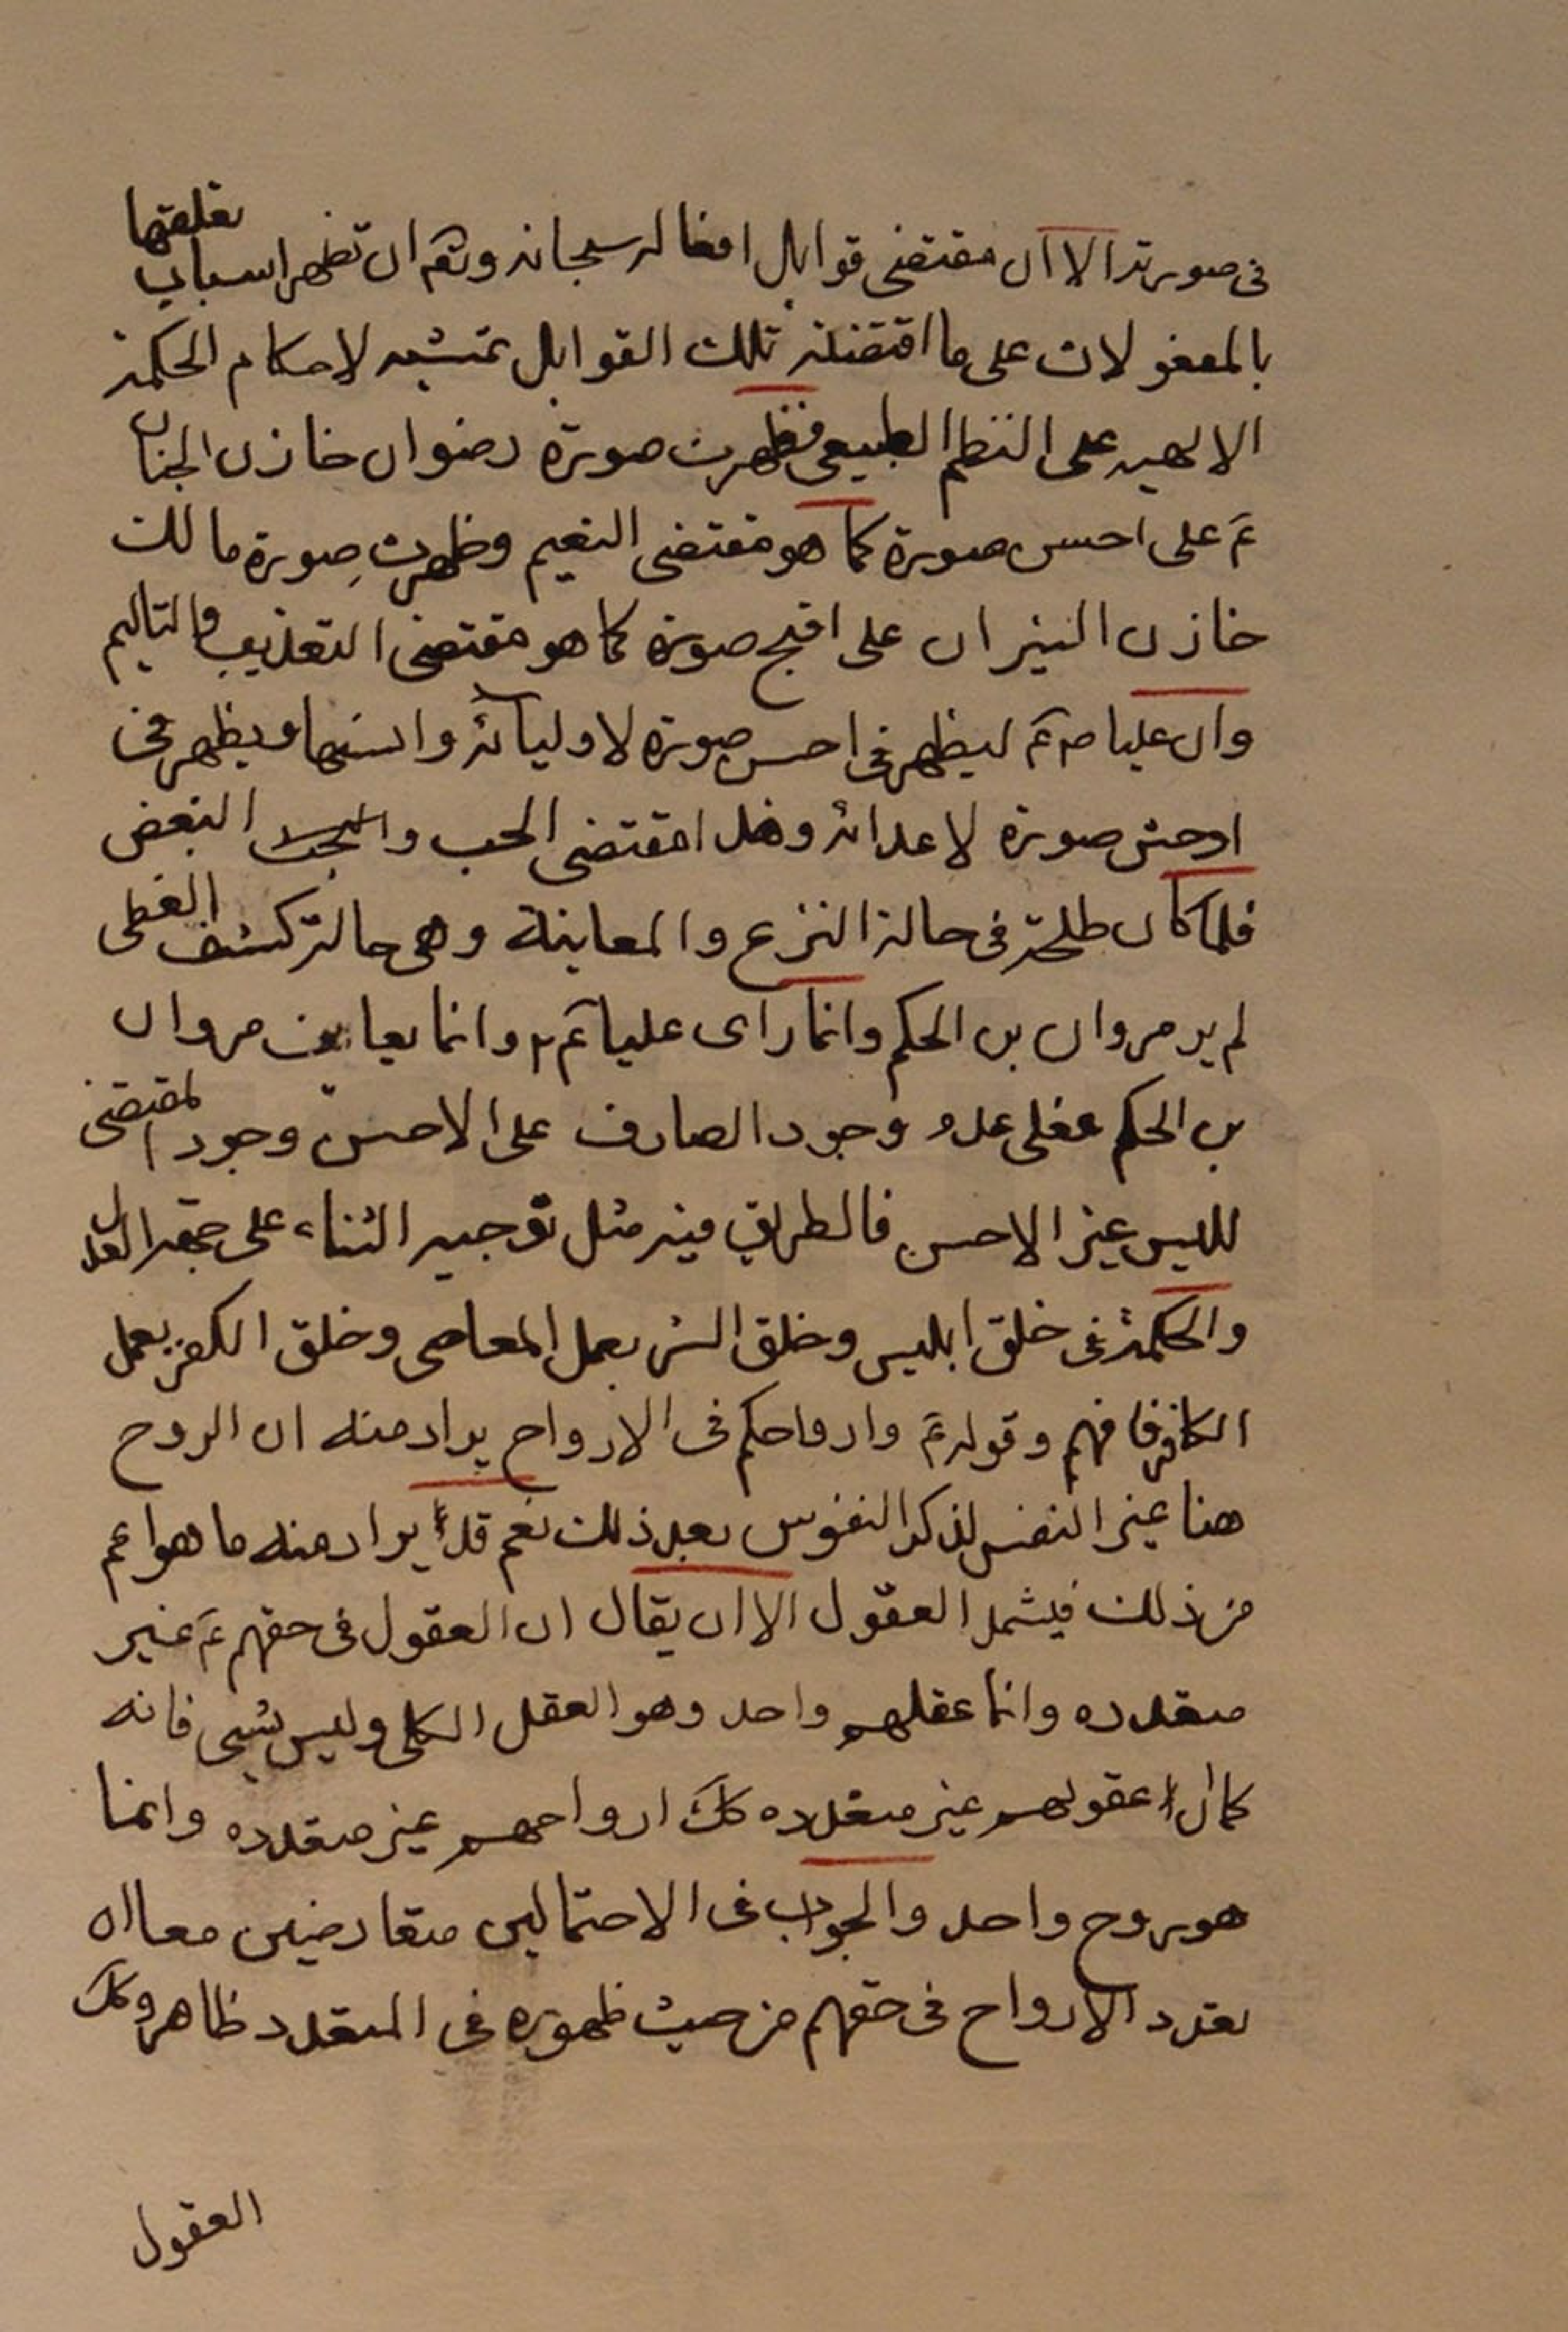 في صورته الا ان مقتضى قوابل افعاله سبحانه وتعم ان تظهر اسباب تعلقها
بالمفعولات على ما اقتضته تلك القوابل تمشيه لاحكام الحكمة
الالهيه على النظم الطبيعي فظهرت صورة رضوان خازن الجنان
عم على احسن صورة كما هو مقتضى النعيم وظهرت صورة مالك
خازن النيران على اقبح صورة كما هو مقتضى التعذيب والتاليم
وان عليا عم ليظهر في احسن صورة لاوليائه واسنها ويظهر في
اوحش صورة لاعدائه وهذا مقتضى الحب والبغض
فلما كان طلحة في حالة النزع والمعاينة وهي حالة كشف الغطى
لم ير مروان بن الحكم وانما راى عليا عم وانما يعاين مروان
بن الحكم فعلى عدم وجود الصارف على الاحسن وجود المقتضى
لليس غير الاحسن فالطريق فيه مثل توجيه الثناء على جهة العدل
والحكمة في خلق ابليس وخلق الشر بعمل المعاصي وخلق الكفر بعمل
الكافر فافهم وقوله عم وارواحكم في الارواح يراد منه ان الروح
هنا غير النفس لذكر النفوس بعد ذلك نعم قد يراد منه ما هو اعم
من ذلك فيشمل العقول الا ان يقال ان العقول في حقهم عم غير
متعدده وانما عقلهم واحد وهو العقل الكلي وليس بشي فانه
كما ان عقولهم غير متعدده كك ارواحهم غير متعدده وانما
هو روح واحد والجواب في الاحتمالين متعارضين معا ان
تعدد الارواح في حقهم من حيث ظهوره في المتعدد ظاهر وكك
العقول